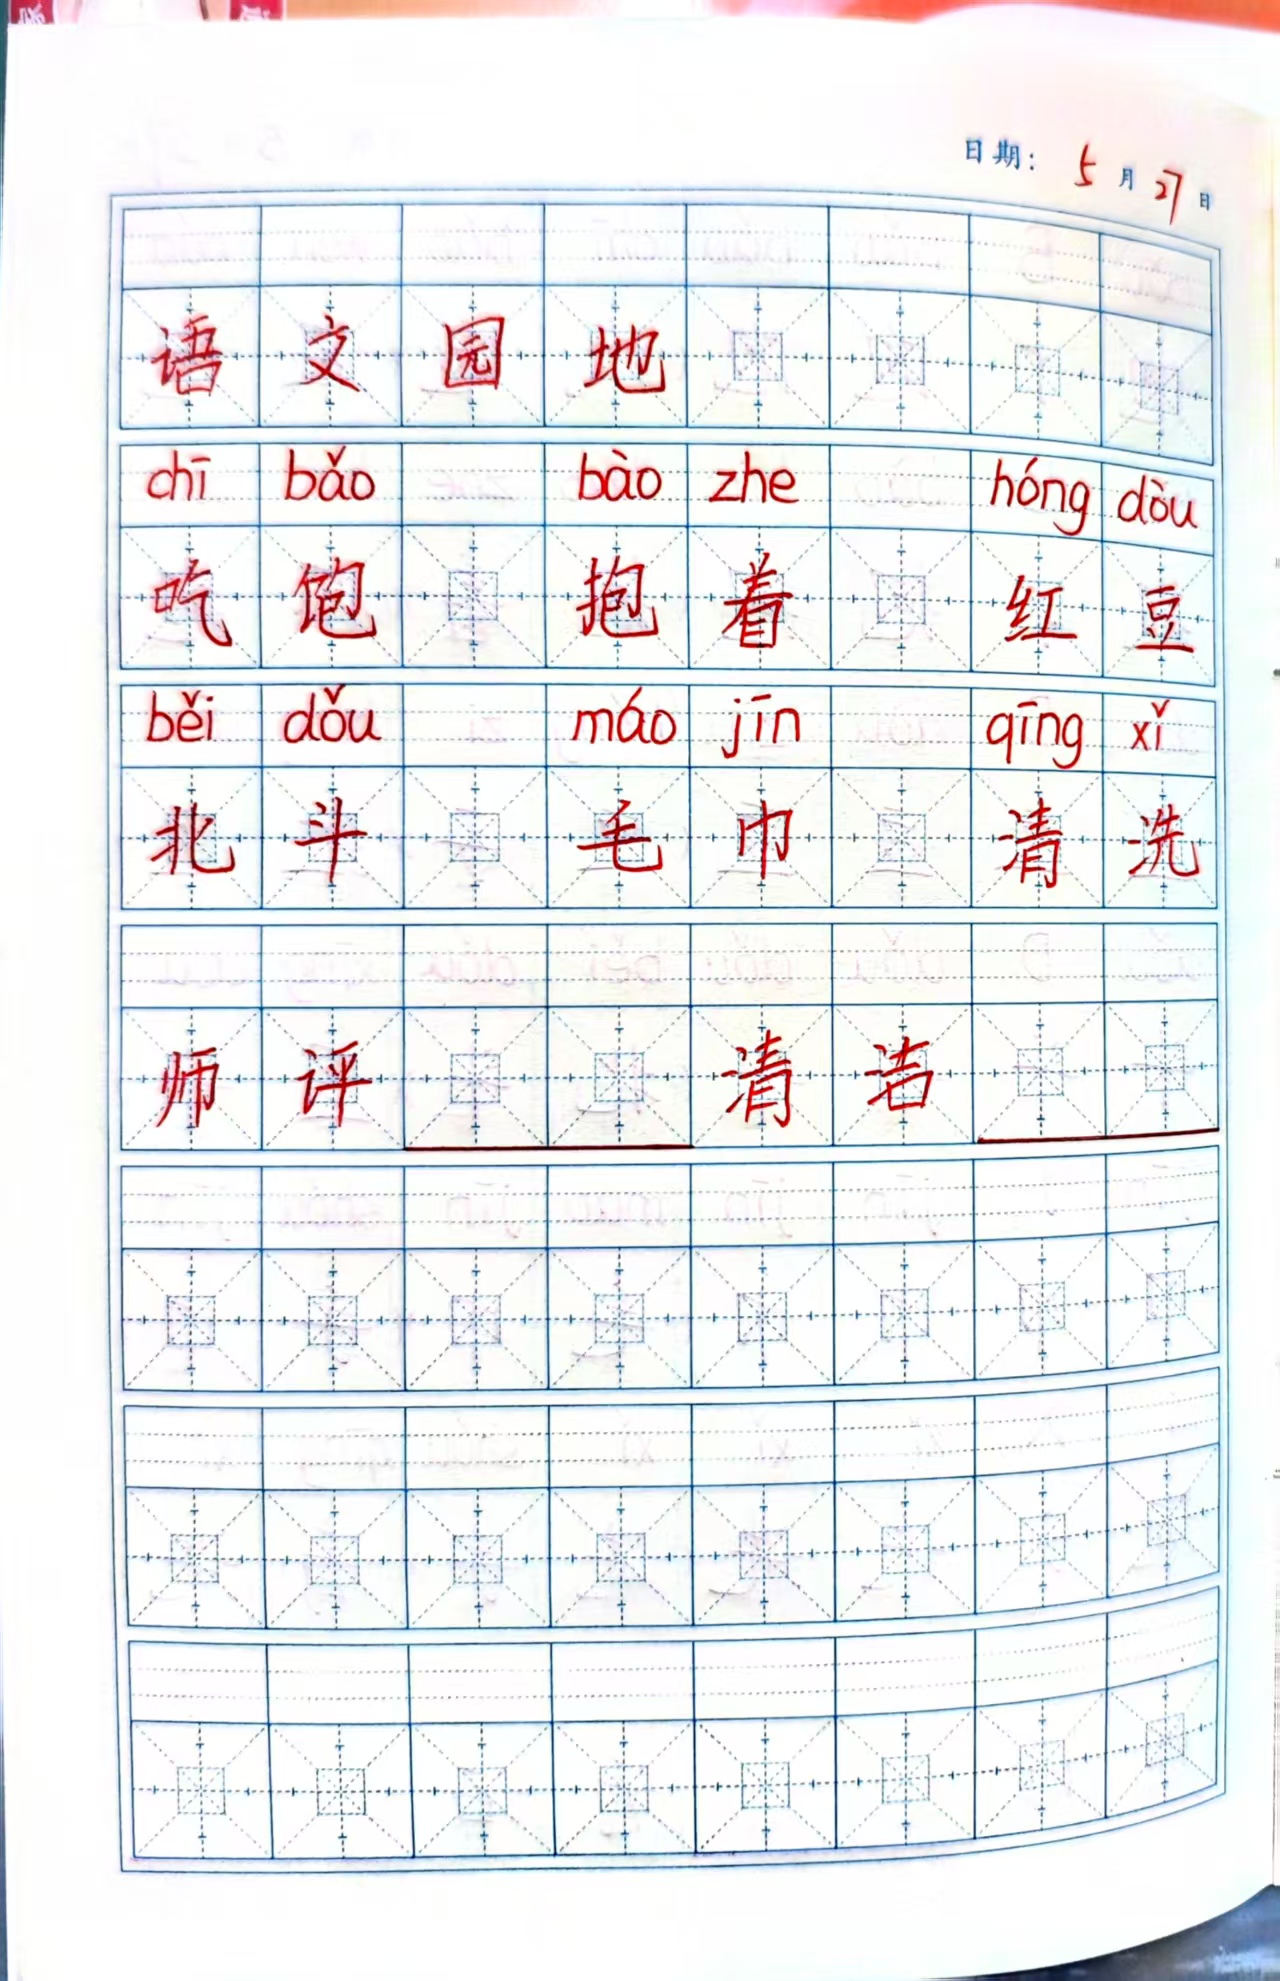 日期: 5月27日
语文园地
chī bǎo bào zhe hóng dòu
吃饱 抱着 红豆
běi dǒu máo jīn qīng xǐ
北斗 毛巾 清洗
师评 清洁